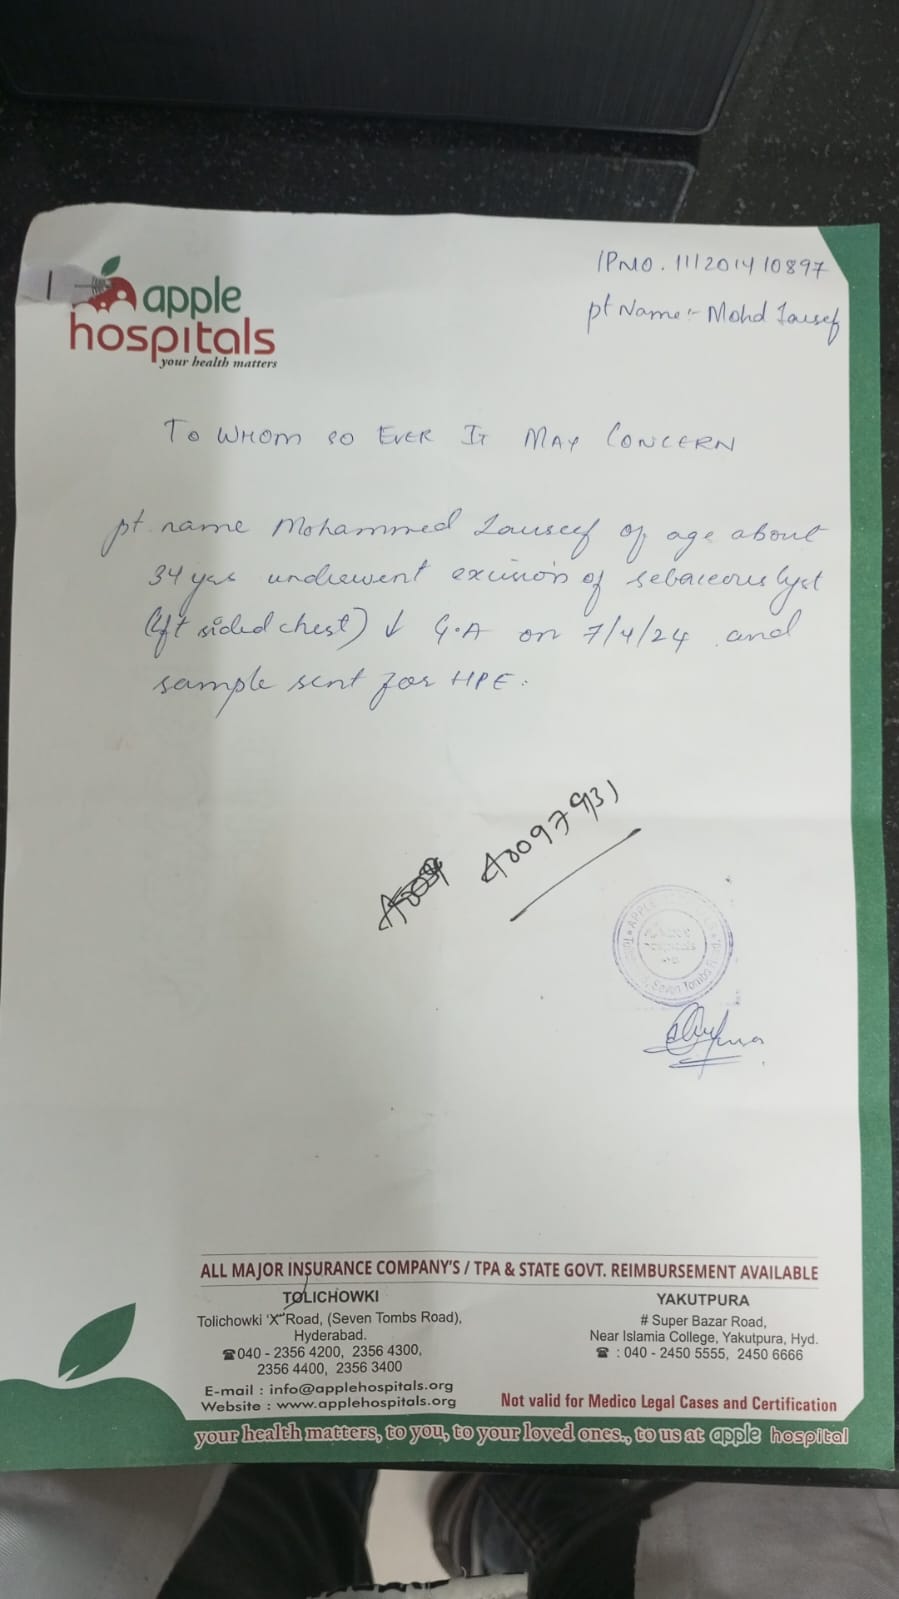 apple
hospitals
your health matters
IPNO. 111201410897
pt Name:- Mohd
TO WHOM SO EVER IT MAY CONCERN
pt name Mohammed of age about
34 yrs underwent excision of sebaceous cyst
(left sided chest) ↓ G.A on 7/4/24 and
sample sent for HPE.
APPLE
Seven Tombs Road
ALL MAJOR INSURANCE COMPANY'S / TPA & STATE GOVT. REIMBURSEMENT AVAILABLE
TOLICHOWKI
Tolichowki 'X' Road, (Seven Tombs Road),
Hyderabad.
☎040 - 2356 4200, 2356 4300,
2356 4400, 2356 3400
E-mail : info@applehospitals.org
Website : www.applehospitals.org
YAKUTPURA
# Super Bazar Road,
Near Islamia College, Yakutpura, Hyd.
☎ : 040 - 2450 5555, 2450 6666
Not valid for Medico Legal Cases and Certification
your health matters, to you, to your loved ones., to us at apple hospital